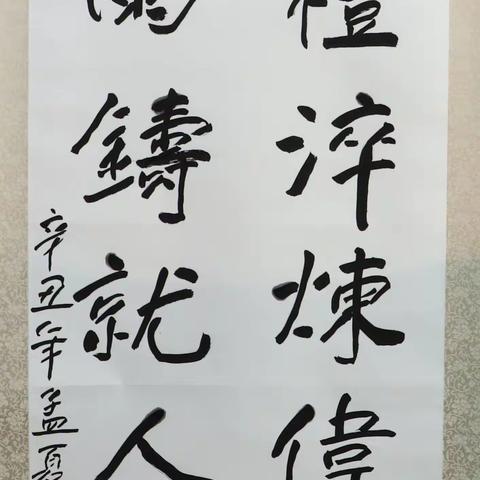 橙淬煉偉
鑄就人
辛丑年孟夏